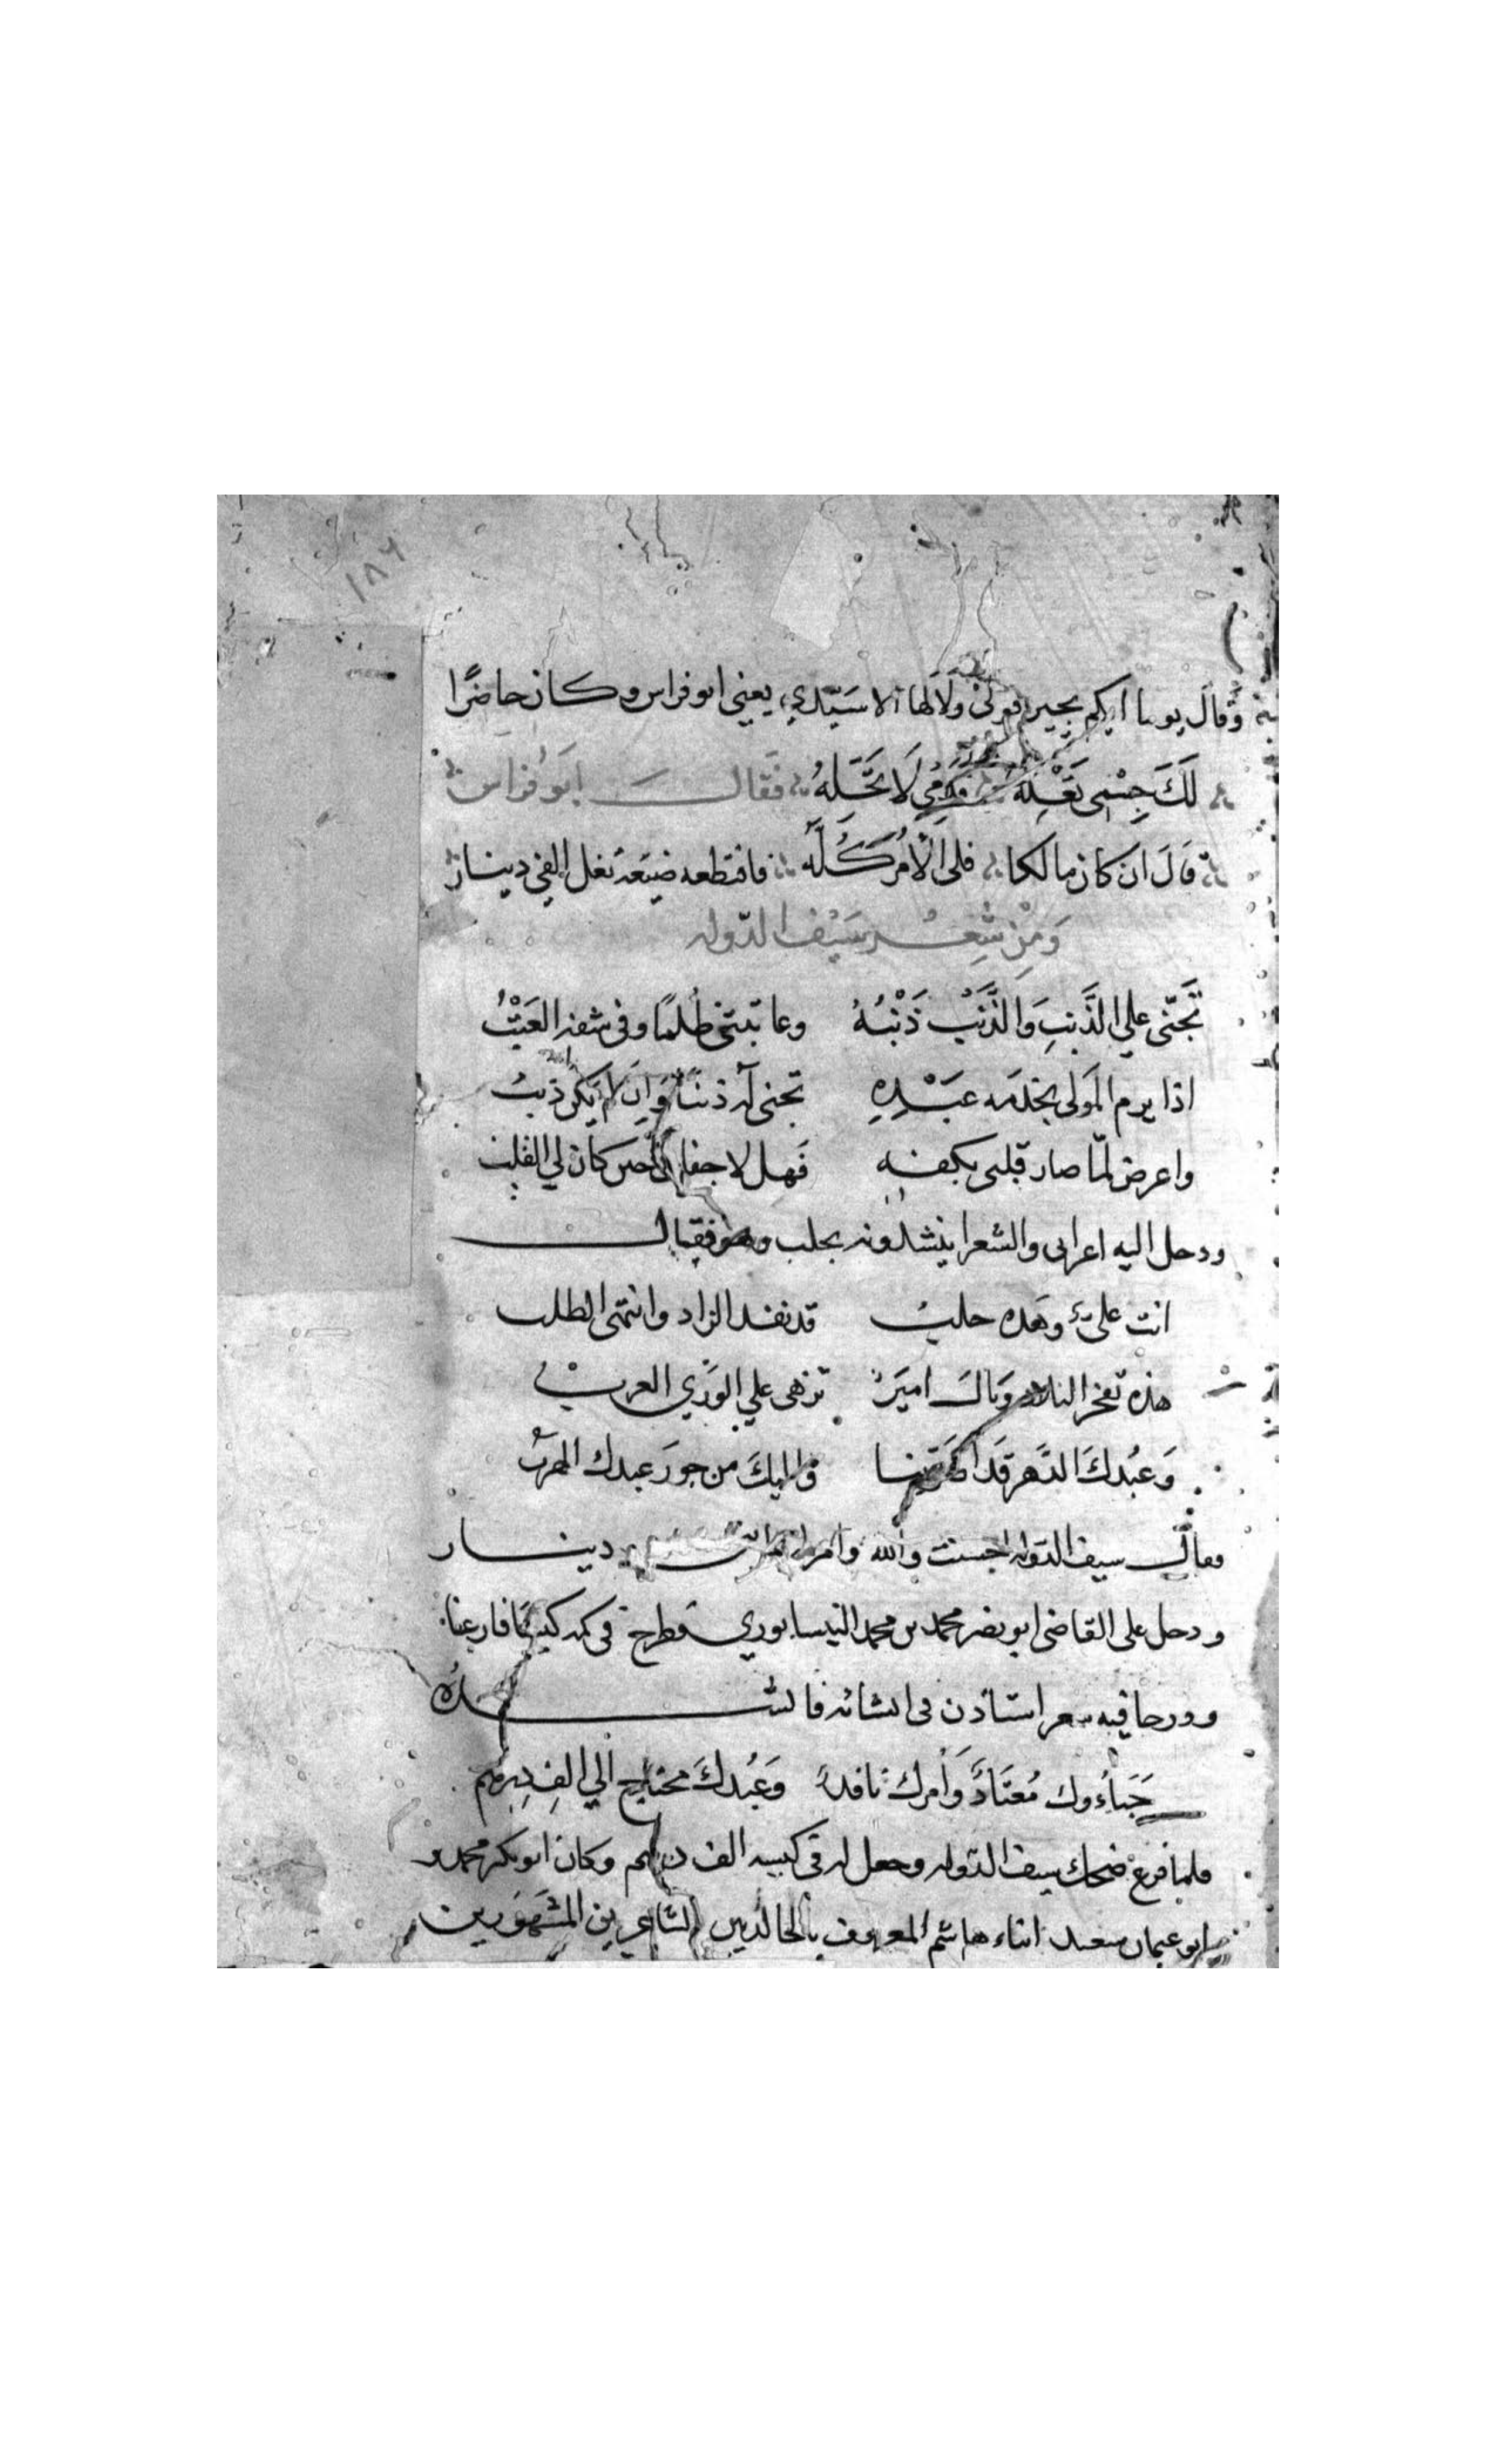 ١٨٦
وقَال يوما ايكم يجيز قولى ولَا لها الا سَيّدي يعنى ابو فراس وكان حاضرًا
لَكَ جِسْمى تَعُلُّه فدمي لَا تَحَلَّهُ فقَال ابَو فراس
قَالَ ان كان مالكا فلى الأمرُ كُلَّه فاقتطعه ضيَعَة تغل الفى دينار
وَمِنْ شِعْر سَيْف الدّوله
تَجَنّى علي الذَّنبِ وَالذَّنْبُ ذَنْبُهُ وعاتبنى ظُلمًا وفى شقه العَتْبُ
اذا برم المَولى بخدمه عبَدْهِ تجنى له ذنبًا وَان لم يكن ذنبُ
واعرض لمّا صار قلبى بكفه فَهلا جفانى حين كان لي القلب
ودخل اليه اعرابى والشعرا ينشدونه بحلب فقال
انت علىٌّ وهَده حلبُ قد نفد الزاد وانتهى الطلب
هذه تفخر البلاد وبالَ اميرَ تزهى علي الوَري العربْ
وَعبُدكَ الدَّهر قَد اضَرّ بنا واليكَ من جورَ عبدك الهربْ
فقال سيف الدوله احسنت والله وامر له دينار
ودخل على القاضى ابو نصر محمد بن محمد النيسابوري فطرح فى كمه كيسًا فارغنا
وورجا فيه شعر استاذن فى انشائه فانشده
حَبَاءُوك مُعتَادٌ وَأمرك نافدٌ وَعبُدكَ محتاج الي الفِ دِرهم
فلما فرغ ضحك سيف الدوله وجعل له فى كيسه الف درهم وكان ابو بكر محمد و
ابو عثمان سعيد ابناء هاشم المعروف بالخالديين الشاعرين المشَهوَرين